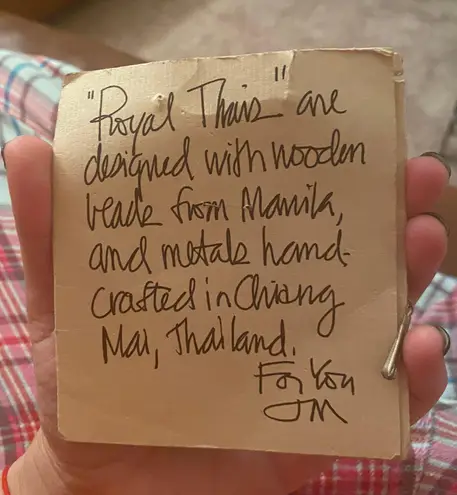 "Royal Thais" are
designed with wooden
beads from Manila,
and metals hand-
crafted in Chiang
Mai, Thailand.
For You
JM